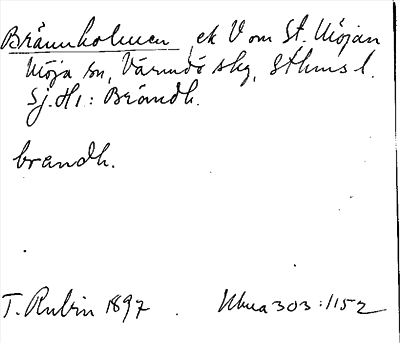 Brännholmen, ek V om St. Möjan
Möja sn, Värmdö skg, Sthms l.
Sj.H1: Brändh.
brandh.
T. Rubin 1897. Ubua 303:1152